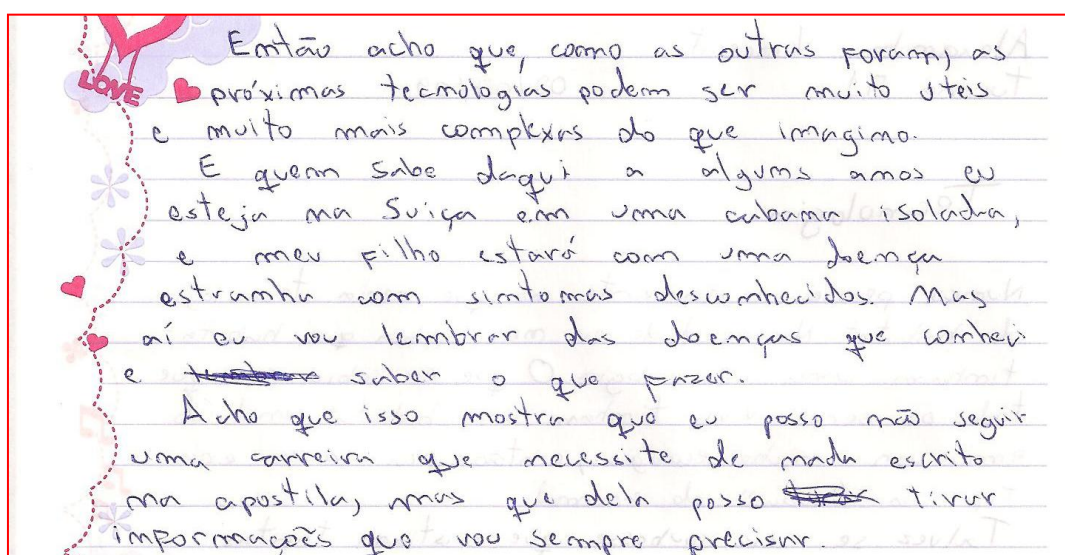 Então acho que, como as outras foram, as
LOVE
próximas tecnologias podem ser muito uteis
e muito mais complexas do que imagino.
E quem sabe daqui a alguns anos eu
esteja na Suiça em uma cabana isolada,
e meu filho estará com uma doença
estranha com sintomas desconhecidos. Mas
aí eu vou lembrar das doenças que conheci
e saber o que fazer.
Acho que isso mostra que eu posso não seguir
uma carreira que necessite de nada escrito
na apostila, mas que dela posso tirar
informações que vou sempre precisar.